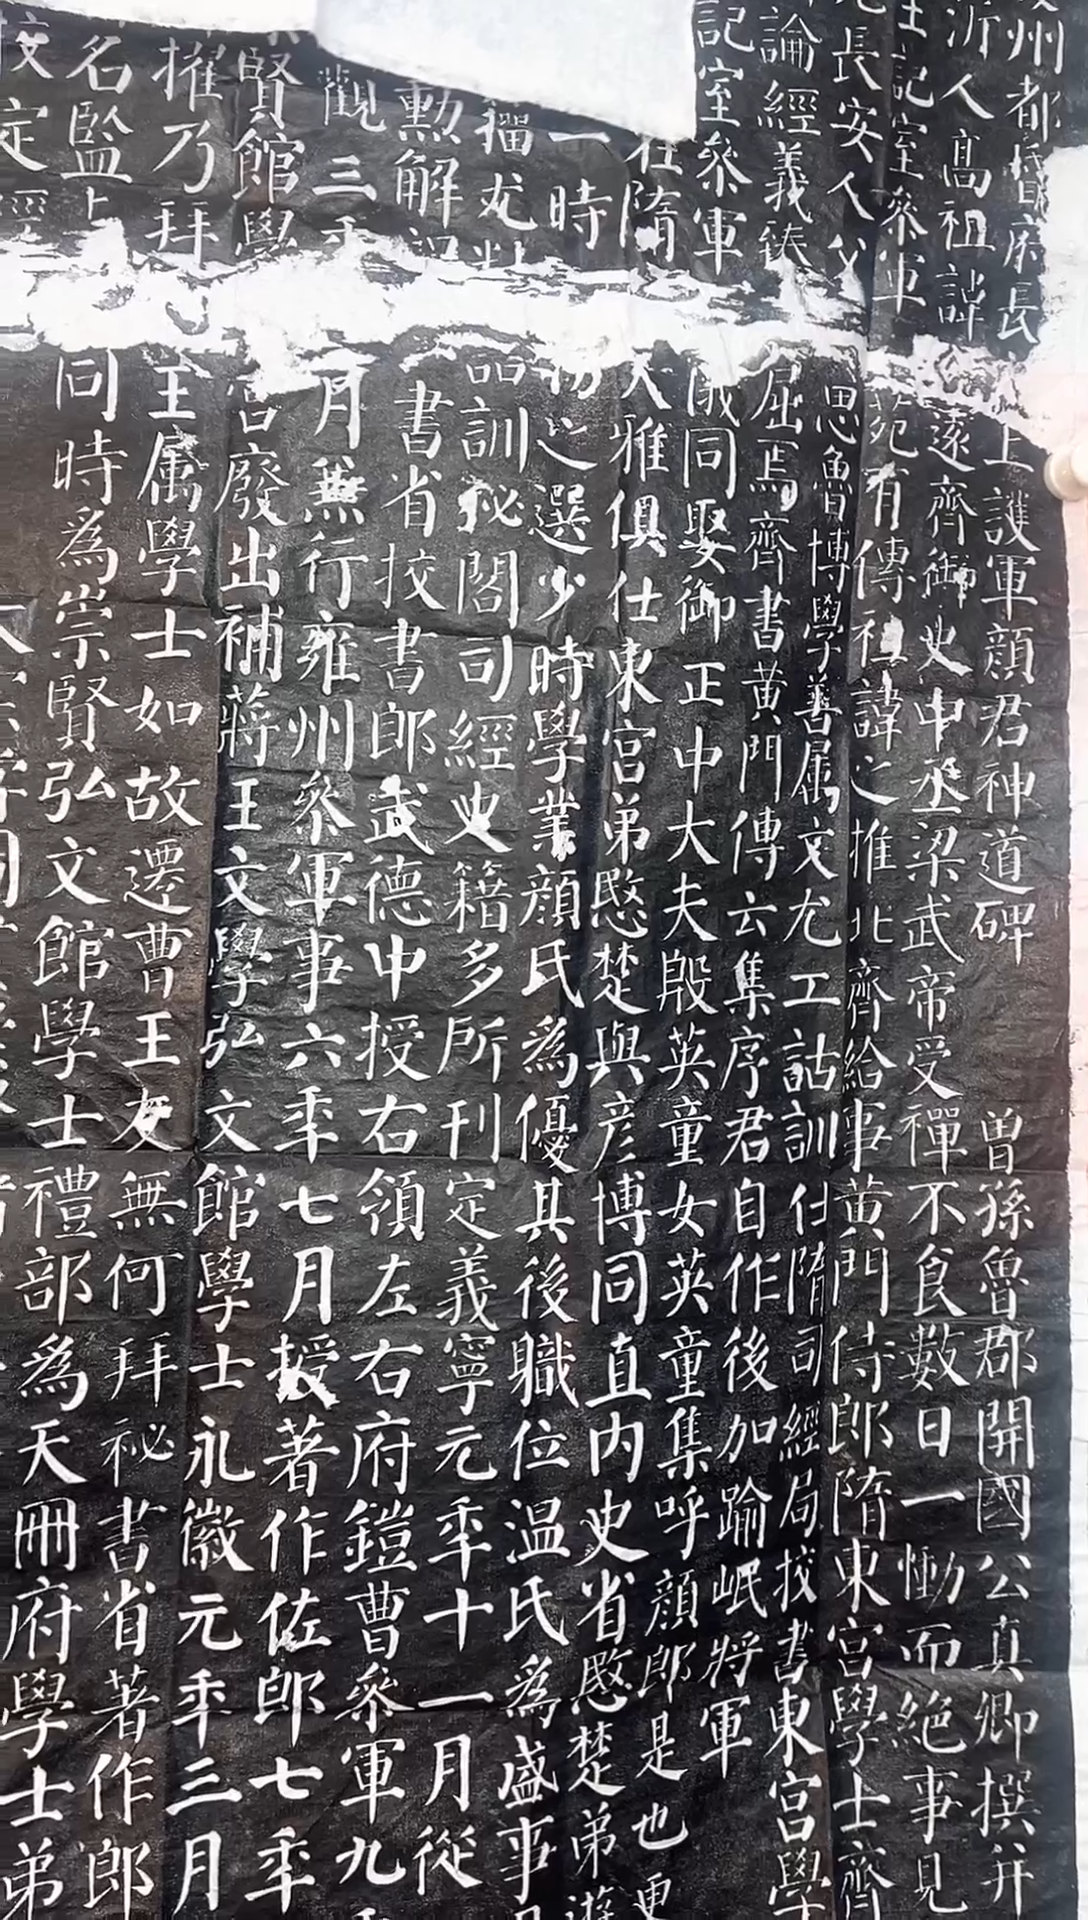 州都督府長 上護軍顏君神道碑 曾孫魯郡開國公真卿撰并
沂人高祖諱 遠齊御史中丞梁武帝受禪不食數日一慟而絕事見
記室參軍 苑有傳祖諱之推北齊給事黃門侍郎隋東宮學士齊
長安人父 思魯博學善屬文尤工詁訓仕隋司經局校書東宮學
論經義 屈焉齊書黃門傳云集序君自作後加踰岷將軍
記室參軍 儀同娶御正中大夫殷英童女英童集呼顏郎是也更
在隋 大雅俱仕東宮弟愍楚與彥博同直内史省愍楚弟遊
一時 之選少時學業顏氏為優其後職位温氏為盛事
品訓祕閣司經史籍多所刊定義寧元年十一月從
勳解 書省挍書郎武德中授右領左右府鎧曹參軍九
觀三年 月無行雍州參軍事六年七月授著作佐郎七年
賢館學 宮廢出補蔣王文學弘文館學士永徽元年三月
擢乃拜 王屬學士如故遷曹王友無何拜祕書省著作郎
名監 同時為崇賢弘文館學士禮部為天冊府學士弟
校定經